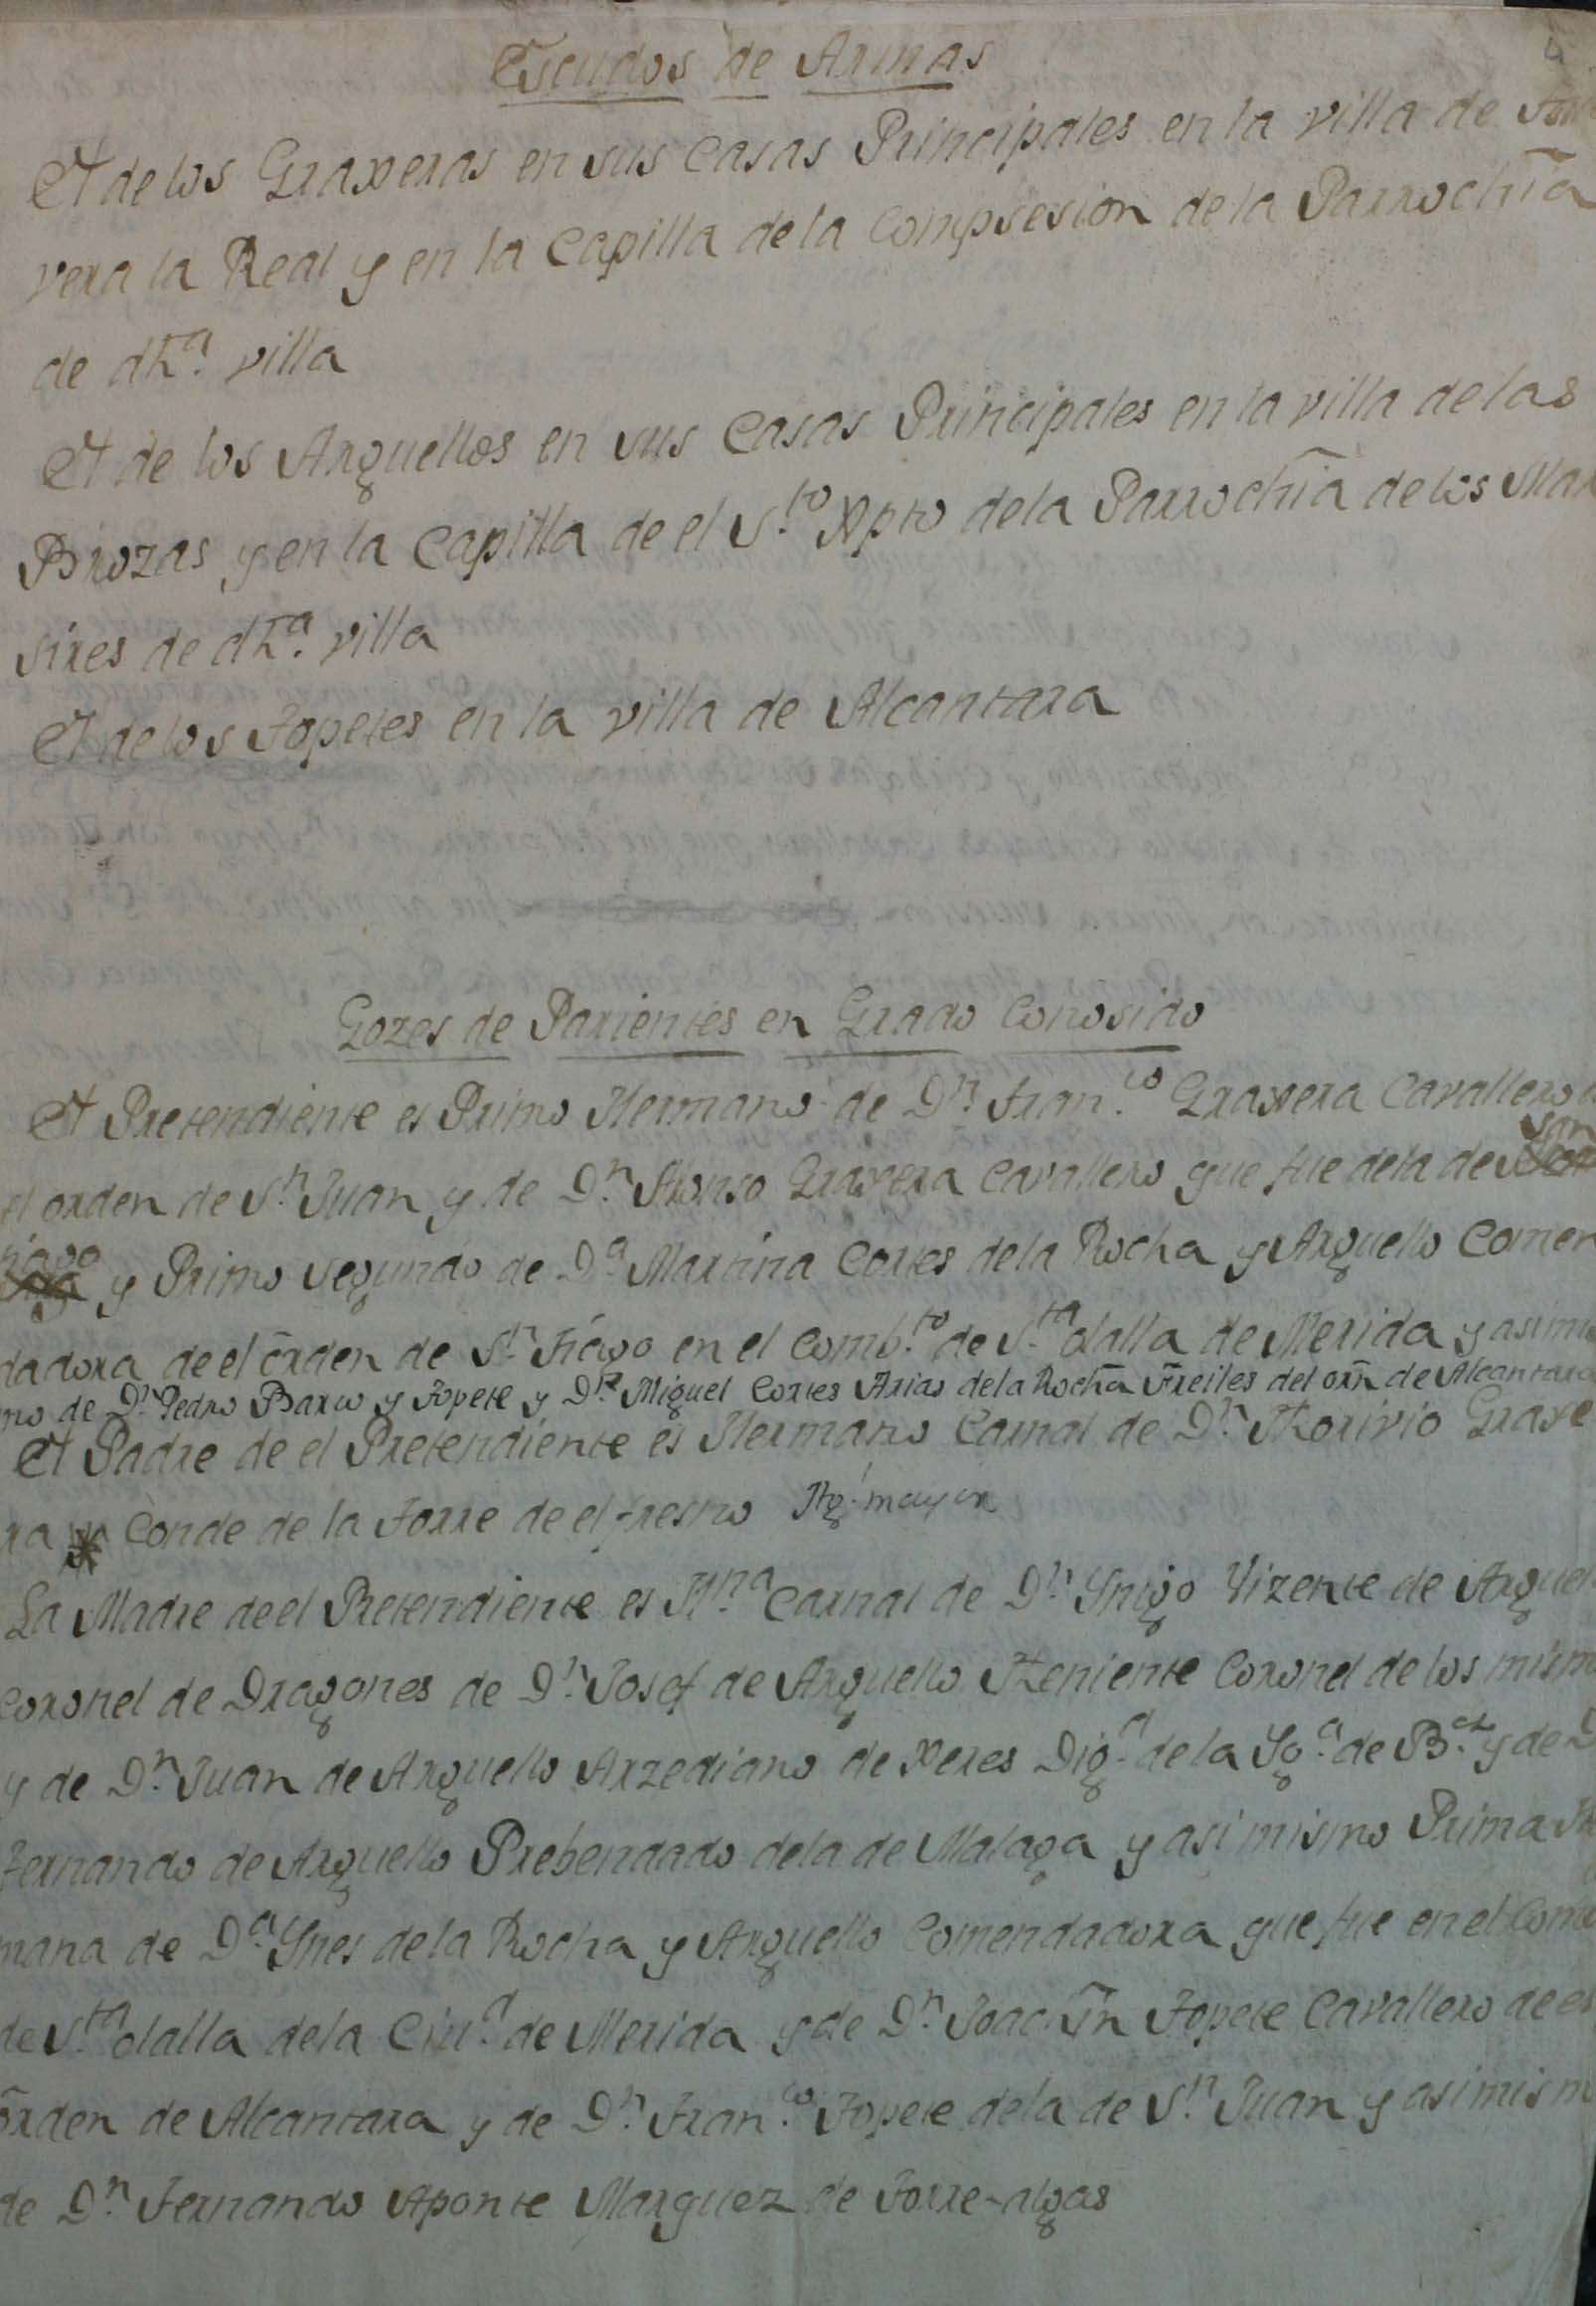 Escudos de Armas
El de los Graxeras en sus Casas Principales en la villa de
vera la Real y en la Capilla de la Compsesion de la Parrochîa
de dha. villa
El de los Arguellos en sus Casas Principales en la villa de las
Brozas y en la Capilla de el S.to Xpto de la Parrochîa de los Mar
tires de dha. villa
El de los Topetes en la villa de Alcantara
Gozes de Parientes en Grado Conosido
El Pretendiente es Primo Hermano de Dn. Fran.co Graxera Cavallero
el orden de Sn. Juan y de Dn. Alonso Graxera Cavallero que fue de la de San
tiago y Primo segundo de Da. Martina Cortes de la Rocha y Arguello Comen
dadora de el orden de Sn. Tiago en el Comb.to de S.ta olalla de Merida y asimis
mo de Dn. Pedro Barco y Topete y Dn. Miguel Cortes Arias de la Rocha Freiles del orn de Alcantara
El Padre de el Pretendiente es Hermano Carnal de Dn. Thorivio Graxe
ra Conde de la Torre de el fresno Alg. mayor
La Madre de el Pretendiente es Hna. Carnal de Dn. Ynigo Vizente de Arguel
Coronel de Dragones de Dn. Josef de Arguello Theniente Coronel de los mism
y de Dn. Juan de Arguello Arzediano de Xeres Dig.d de la Yg.a de B.z y de D
Fernando de Arguello Prebendado de la de Malaga y asi mismo Prima He
mana de Da. Ynes de la Rocha y Arguello Comendadora que fue en el Comb
de S.ta olalla de la Ciu.d de Merida y de Dn. Joachin Topete Cavallero de el
orden de Alcantara y de Dn. Fran.co Topete de la de Sn. Juan y asimism
de Dn. Fernando Aponte Marquez de Torre-algas